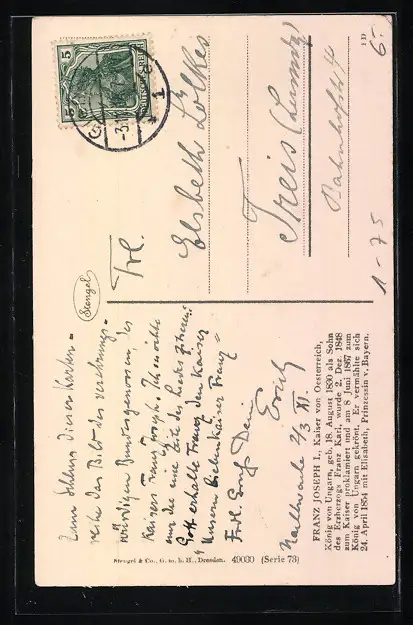 Zum Schluss dieser Karten-
reihe das Bild des verehrungs-
würdigen Bundesgenossen des
Kaisers Franz Joseph. Ich möchte
nur die eine Zeile des Liedes zitieren:
Gott erhalte Franz den Kaiser
Unsern Kaiser Franz
Frdl. Gruß Dein
Erich
2/3 XI.
FRANZ JOSEPH I., Kaiser von Oesterreich,
König von Ungarn, geb. 18. August 1830 als Sohn
des Erzherzogs Franz Karl, wurde 2. Dez. 1848
zum Kaiser proklamiert und am 8 Juni 1867 zum
König von Ungarn gekrönt. Er vermählte sich
24. April 1854 mit Elisabeth, Prinzessin v. Bayern.
Stengel & Co., G. m. b. H., Dresden. 49030 (Serie 73)
Stengel
5
DEUTSCHES REICH
Frl.
Elsbeth Lölkes
Treis (Lumda)
Bahnhofstr. 4
1 D
6.-
1-75